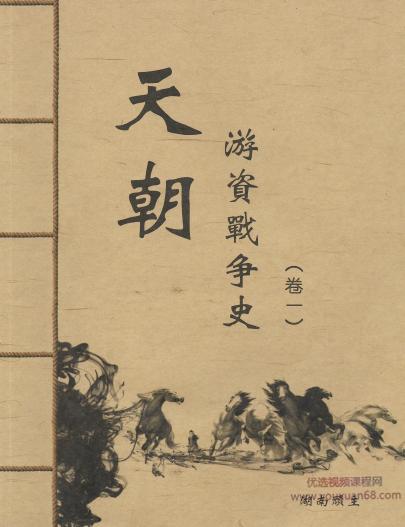 天朝
游資戰争史
（卷一）
湖南順主
优选视频课程网
www.youxuan68.com